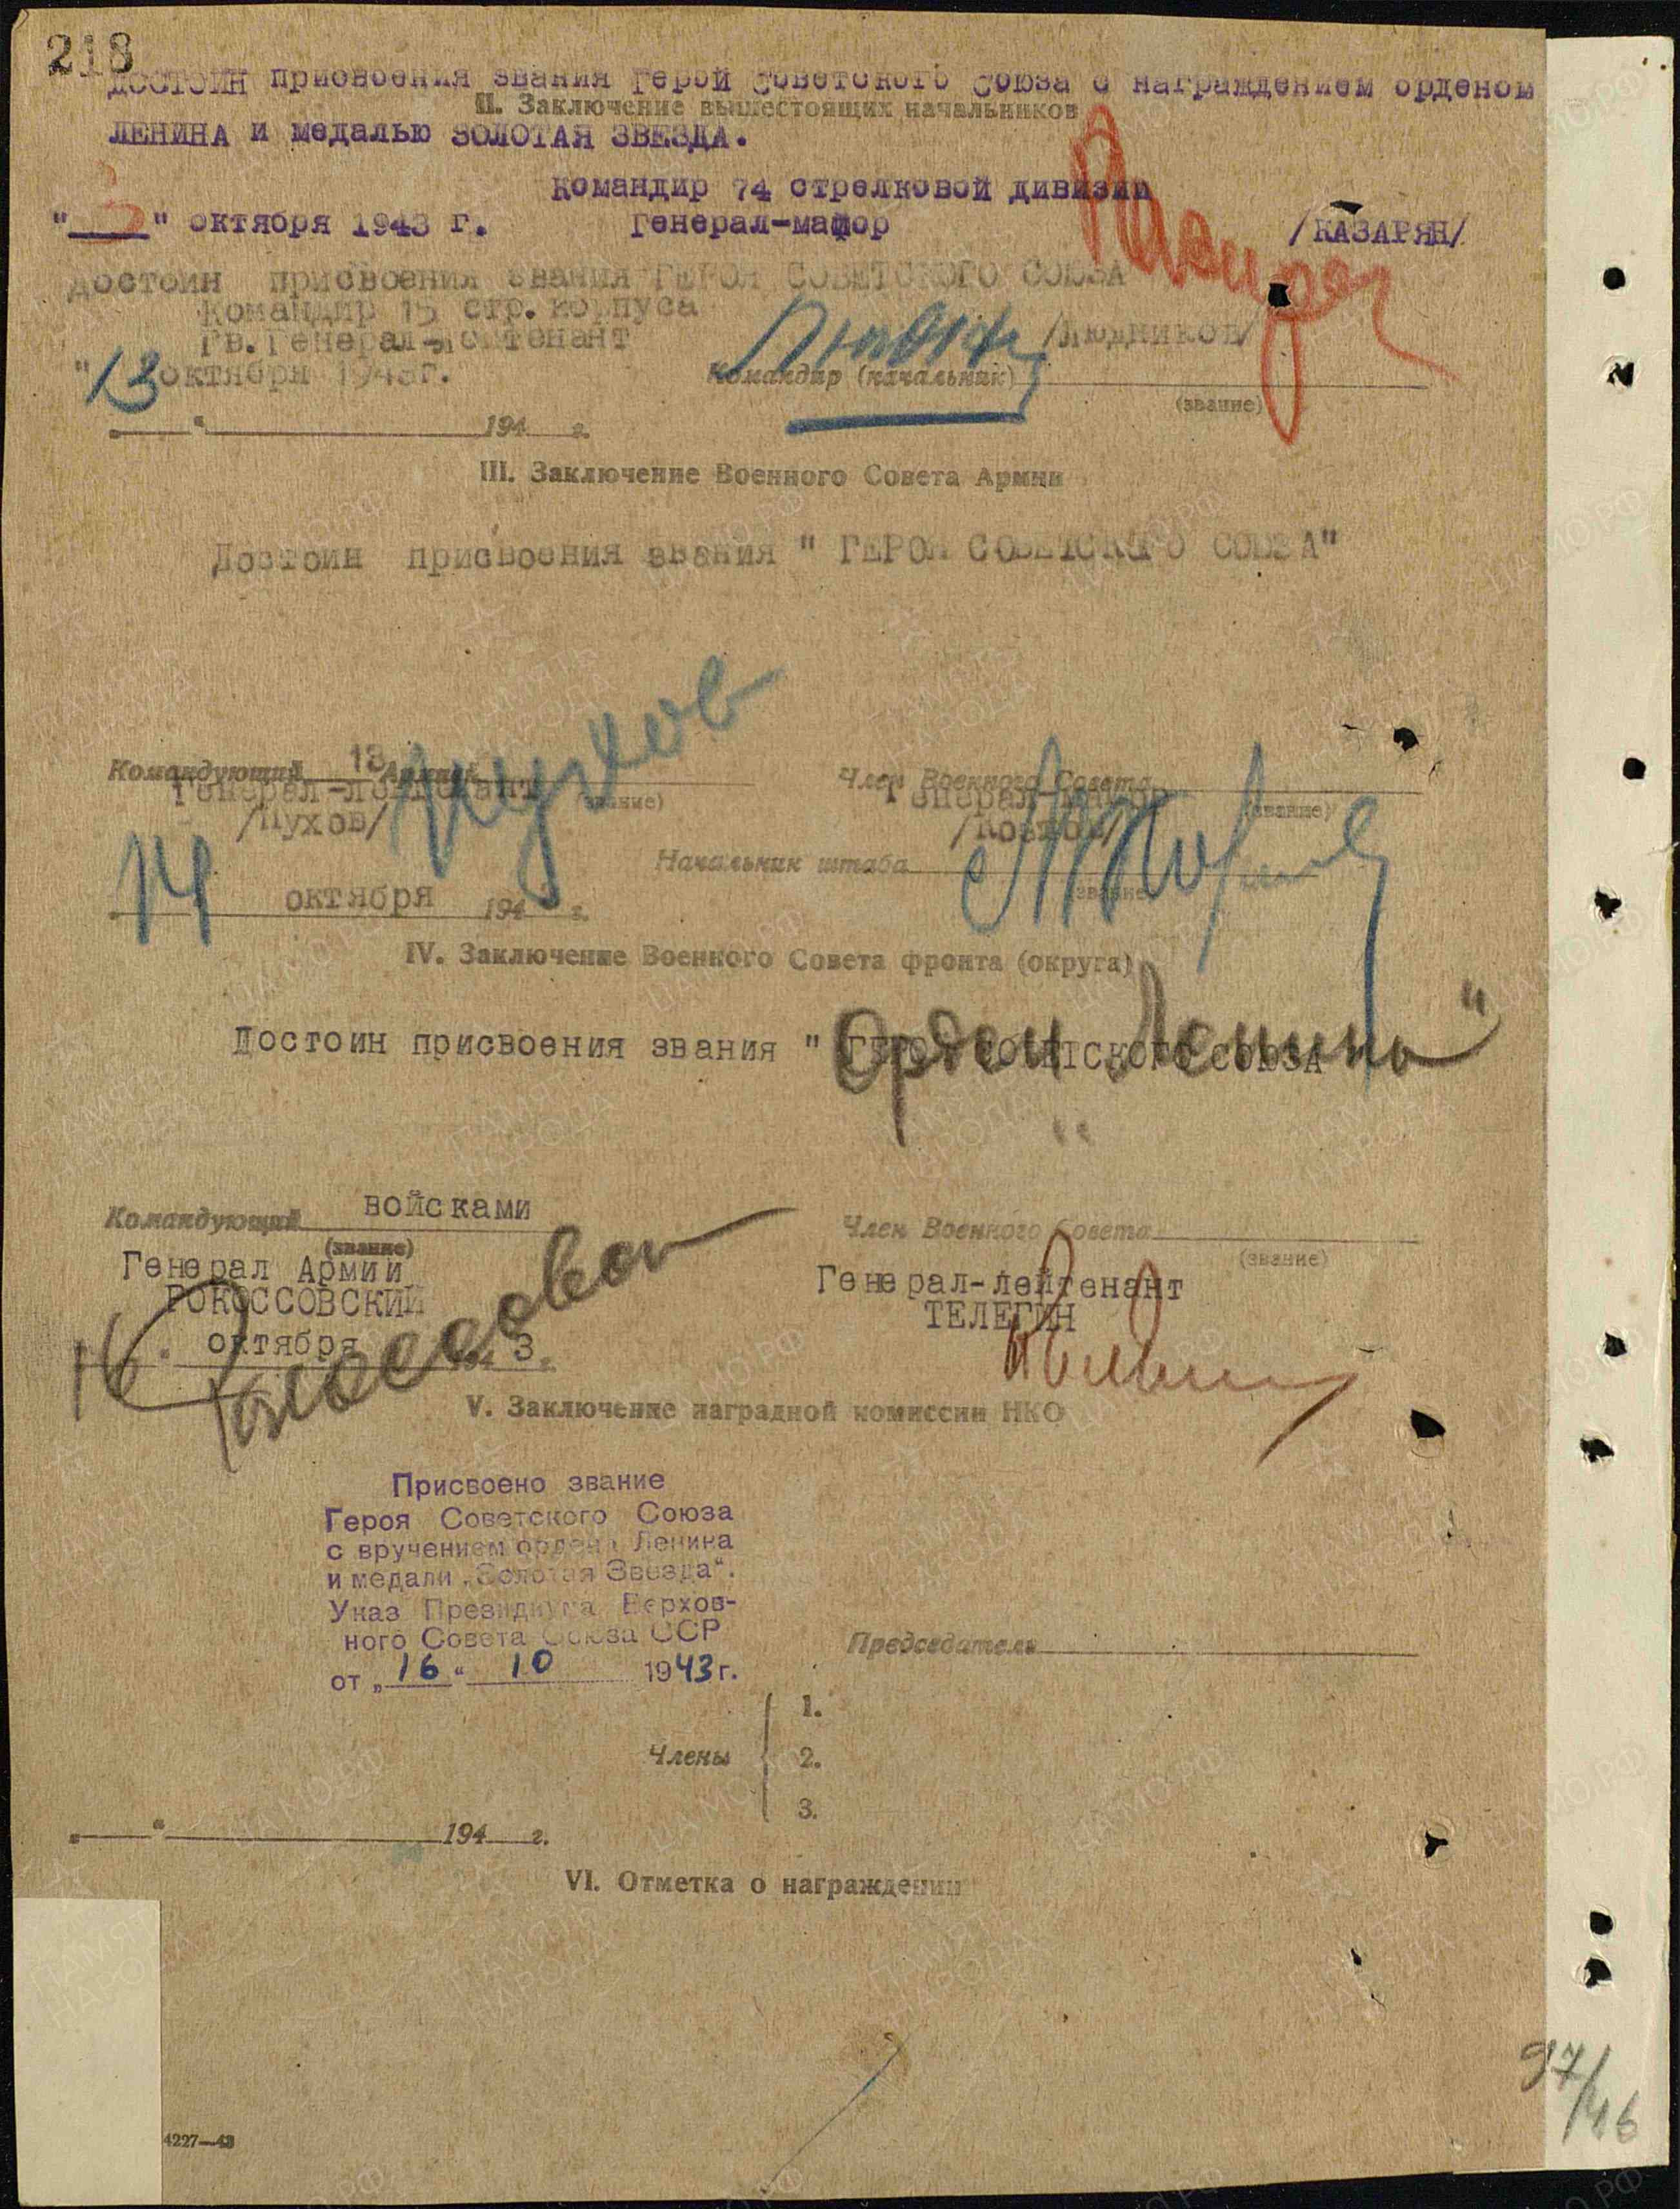 218
достоин присвоения звания Герой Советского Союза с награждением орденом
II. Заключение вышестоящих начальников
ЛЕНИНА и медалью ЗОЛОТАЯ ЗВЕЗДА.
Командир 74 стрелковой дивизии
"3" октября 1943 г. Генерал-майор /КАЗАРЯН/
достоин присвоения звания ГЕРОЯ СОВЕТСКОГО СОЮЗА
Командир 15 стр. корпуса
Гв. Генерал-лейтенант /Людников/
"13 октября 1943г. Командир (начальник)
(звание)
„ “ 194 г.
III. Заключение Военного Совета Армии
Достоин присвоения звания " ГЕРОЯ СОВЕТСКОГО СОЮЗА"
Командующий 13 Армией Член Военного Совета
Генерал-лейтенант (звание) Генерал-майор (звание)
/Пухов/ Пухов /Козлов/
Начальник штаба
(звание)
14 октября 194 г.
IV. Заключение Военного Совета фронта (округа)
Достоин присвоения звания " ГЕРОЯ СОВЕТСКОГО СОЮЗА
Орден Ленина"
Командующий войсками Член Военного Совета
(звание) (звание)
Генерал Армии Генерал-лейтенант
РОКОССОВСКИЙ ТЕЛЕГИН
16 октября 1943 г.
Рокоссовский
V. Заключение наградной комиссии НКО
Присвоено звание
Героя Советского Союза
с вручением ордена Ленина
и медали „Золотая Звезда“.
Указ Президиума Верхов-
ного Совета Союза ССР
от „16“ 10 1943 г.
Председатель
1.
Члены 2.
3.
„ “ 194 г.
VI. Отметка о награждении
97/46
4227—43
ПАМЯТЬ НАРОДА
ЦАМО.РФ